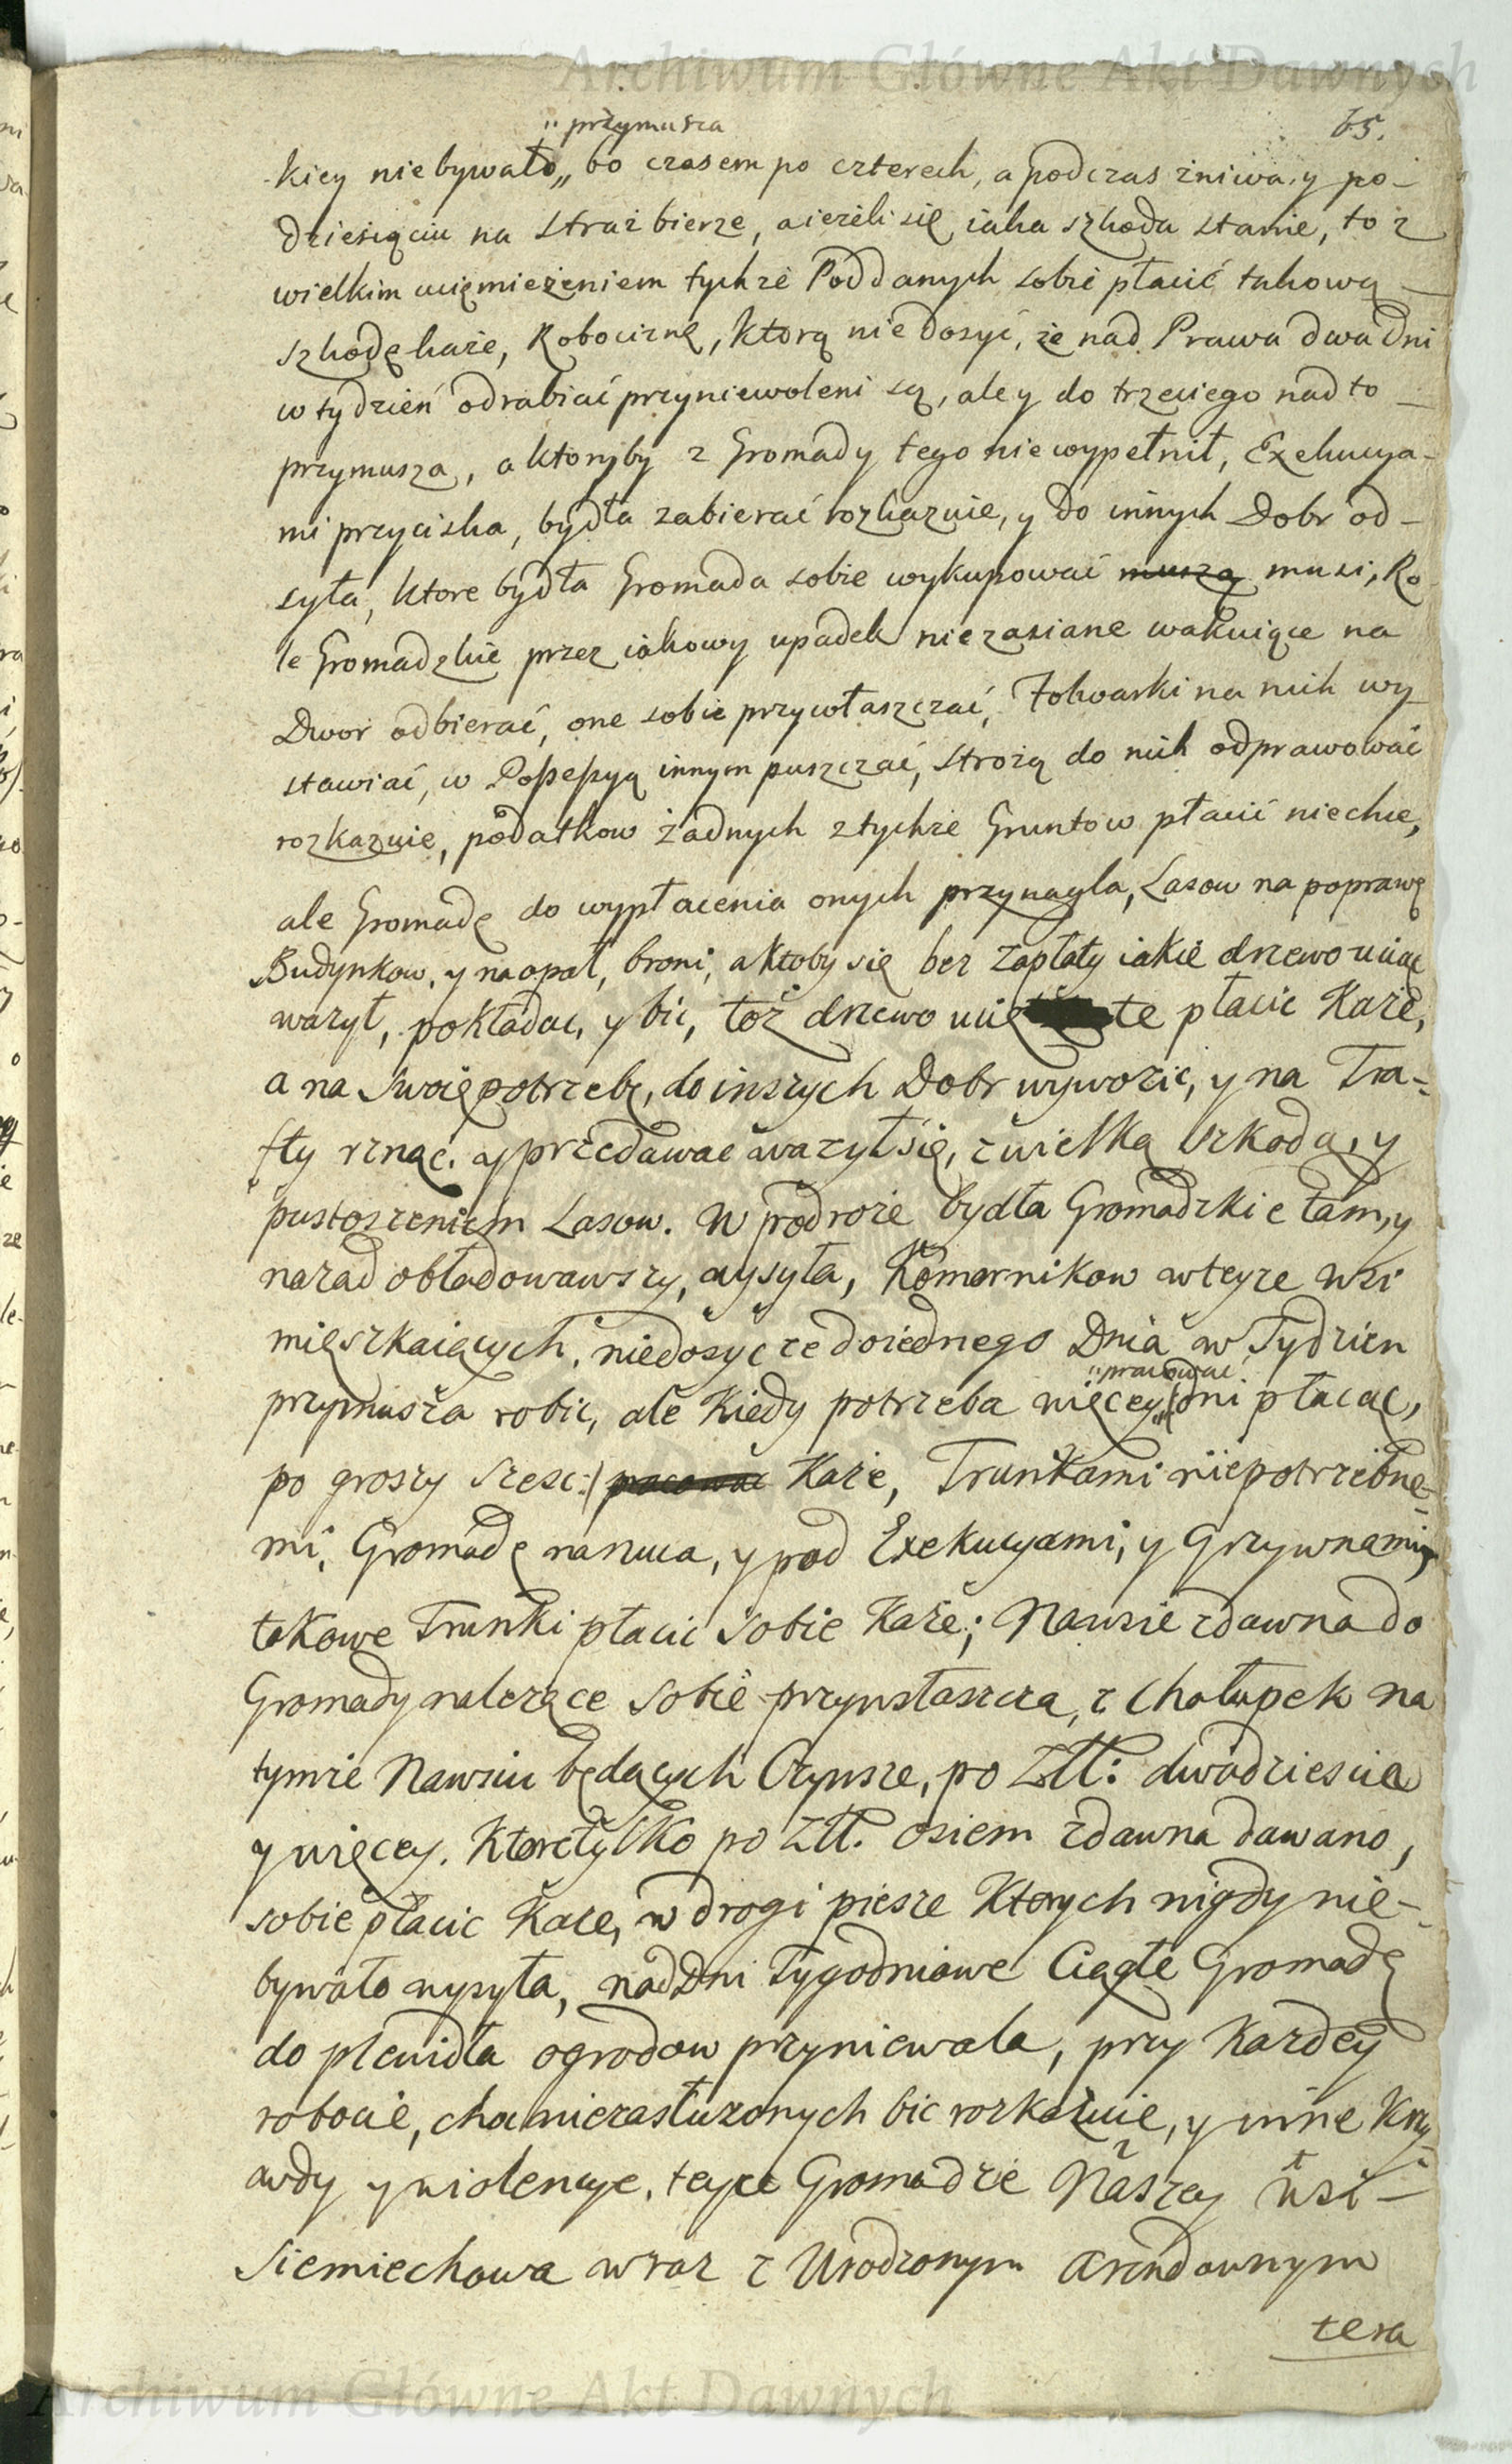 Archiwum Główne Akt Dawnych
65.
„przymusza
kiey niebywało„ bo czasem po czterech, a podczas żniwa y po-
dziesiąciu na straż bierze, a ieżeli się iaka szkoda stanie, to z
wielkim uciemiężeniem tychże Poddanych sobie płacić takową
szkodę każe, Robociznę, ktorą niedosyć, że nad Prawa dwa dni
w tydzień odrabiać przyniewoleni są, ale y do trzeciego nadto
przymusza, a ktoryby z Gromady tego niewypełnił, Exekucya-
mi przyciska, bydła zabierać rozkazuie, y do innych Dobr od-
syła, ktore bydła Gromada sobie wykupować muszą musi, Ro
le Gromadzkie przez iakowy upadek niezasiane wakuiące na
Dwor odbierać, one sobie przywłaszczać, Folwarki na nich wy
stawiać, w Possessyą innym puszczać, strożą do nich odprawować
rozkazuie, podatkow żadnych z tychże Gruntow płacić niechce,
ale Gromadę do wypłacenia onych przynagla, Lasow na poprawę
Budynkow, y na opał, broni, a ktoby się bez zapłaty iakie drzewo uciąć
ważył, pokładac, y bic, toż drzewo ucięte płacic Każe,
a na swoię potrzebę, do inszych Dobr wywozic, y na Tra-
fty rznąć, y przedawac ważył się, z wielką szkodą, y
pustoszeniem Lasow. W podroże bydła Gromadzkie tam, y
nazad obładowawszy, wysyła, Komornikow w teyże wsi
mięszkaiących, niedosyc że do iednego Dnia w Tydzien
„pracować
przymusza robic, ale Kiedy potrzeba więcey„ /: oni płacąc,
po groszy szesc :/ pracować Każe, Trunkami niepotrzebne-
mi, Gromadę narzuca, y pod Exekucyami, y Grzywnami,
takowe Trunki płacic sobie Każe; Nawsie zdawna do
Gromady należące sobie przywłaszcza, z Chałupek na
tymże Nawsiu będących Czynsze, po Złł: dwadziescia
y więcey. Ktore tylko po Złł. osiem zdawna dawano,
sobie płacic Każe, w drogi piesze Ktorych nigdy nie-
bywało wysyła, nad Dni Tygodniowe Ciągłe Gromadę
do plewidła ogrodow przyniewala, przy Kazdey
robocie, choc niezasłużonych bic rozkazuie, y inne Krzy
wdy y wiolencye, teyże Gromadzie Naszey wsi
Siemiechowa wraz z Urodzonym Arendownym
tera
Archiwum Główne Akt Dawnych